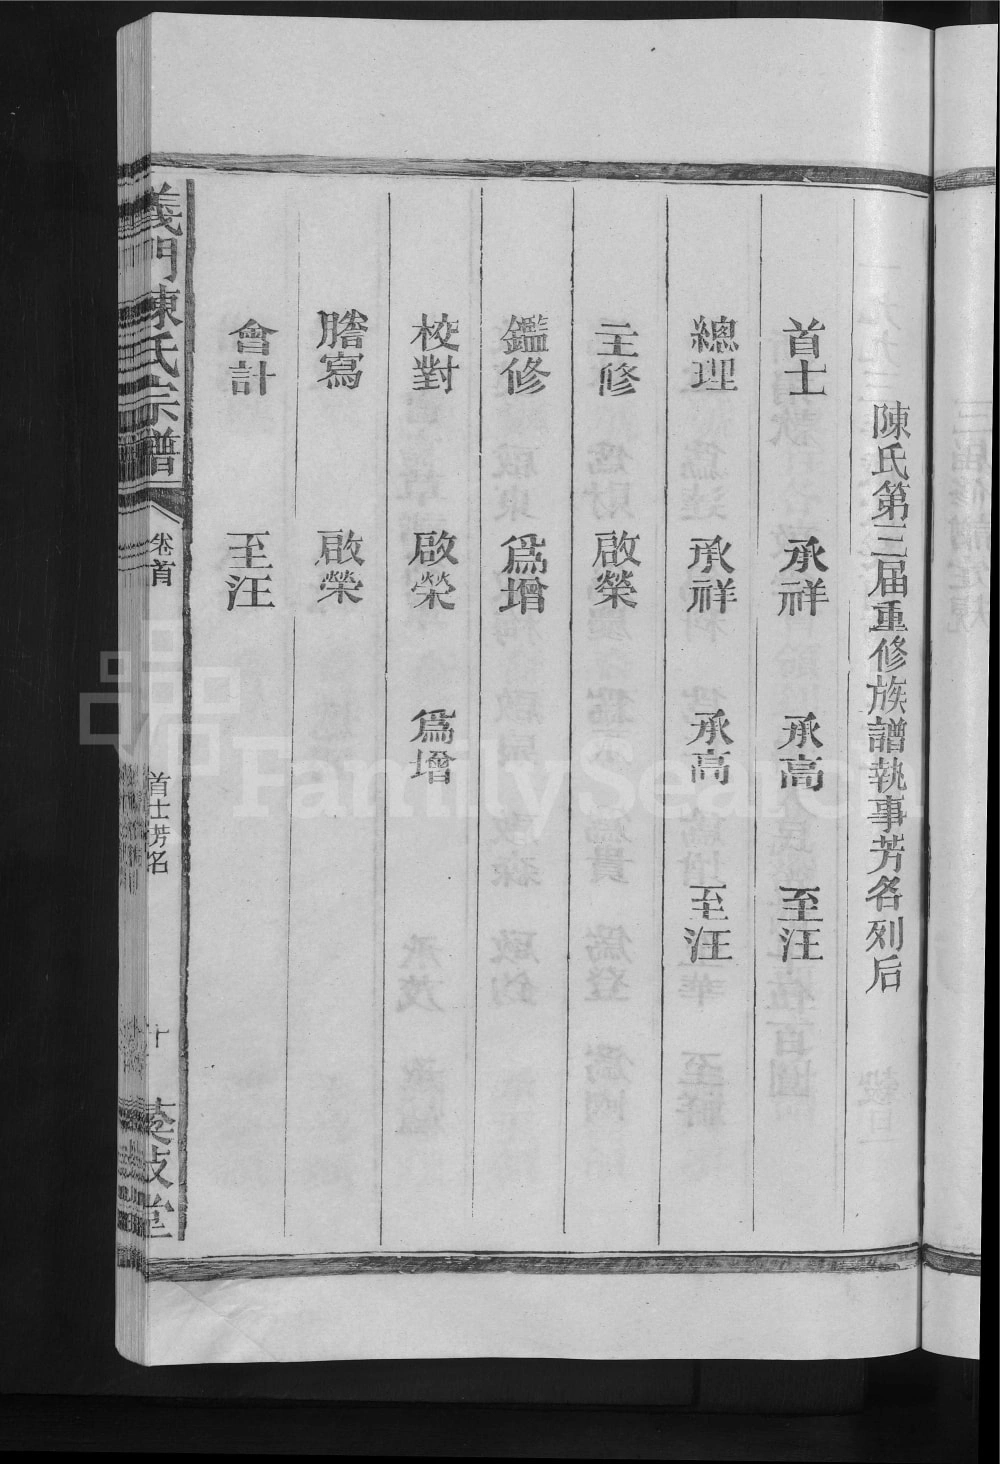 陳氏第三届重修族譜執事芳名列后
首士 承祥 承高 至汪
總理 承祥 承高 至汪
主修 啟榮
鑑修 爲增
校對 啟榮 爲增
謄寫 啟榮
會計 至汪
義門陳氏宗譜 卷首 首士芳名 十
FamilySearch